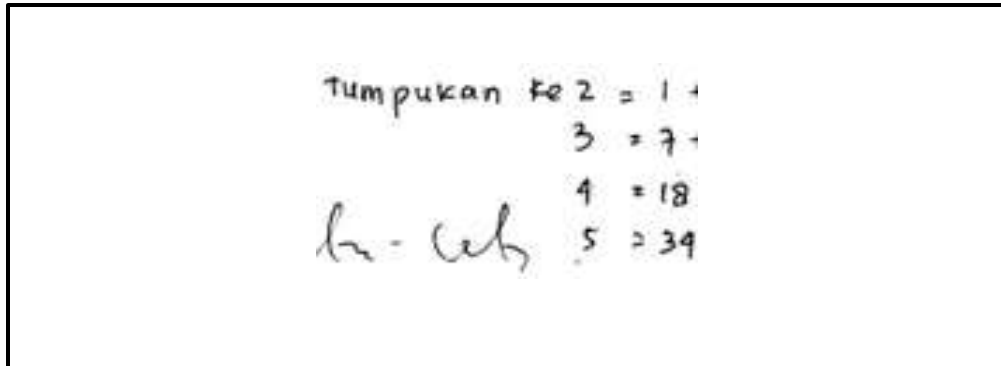 Tumpukan ke 2 = 1 +
3 = 7 -
4 = 18
5 = 34